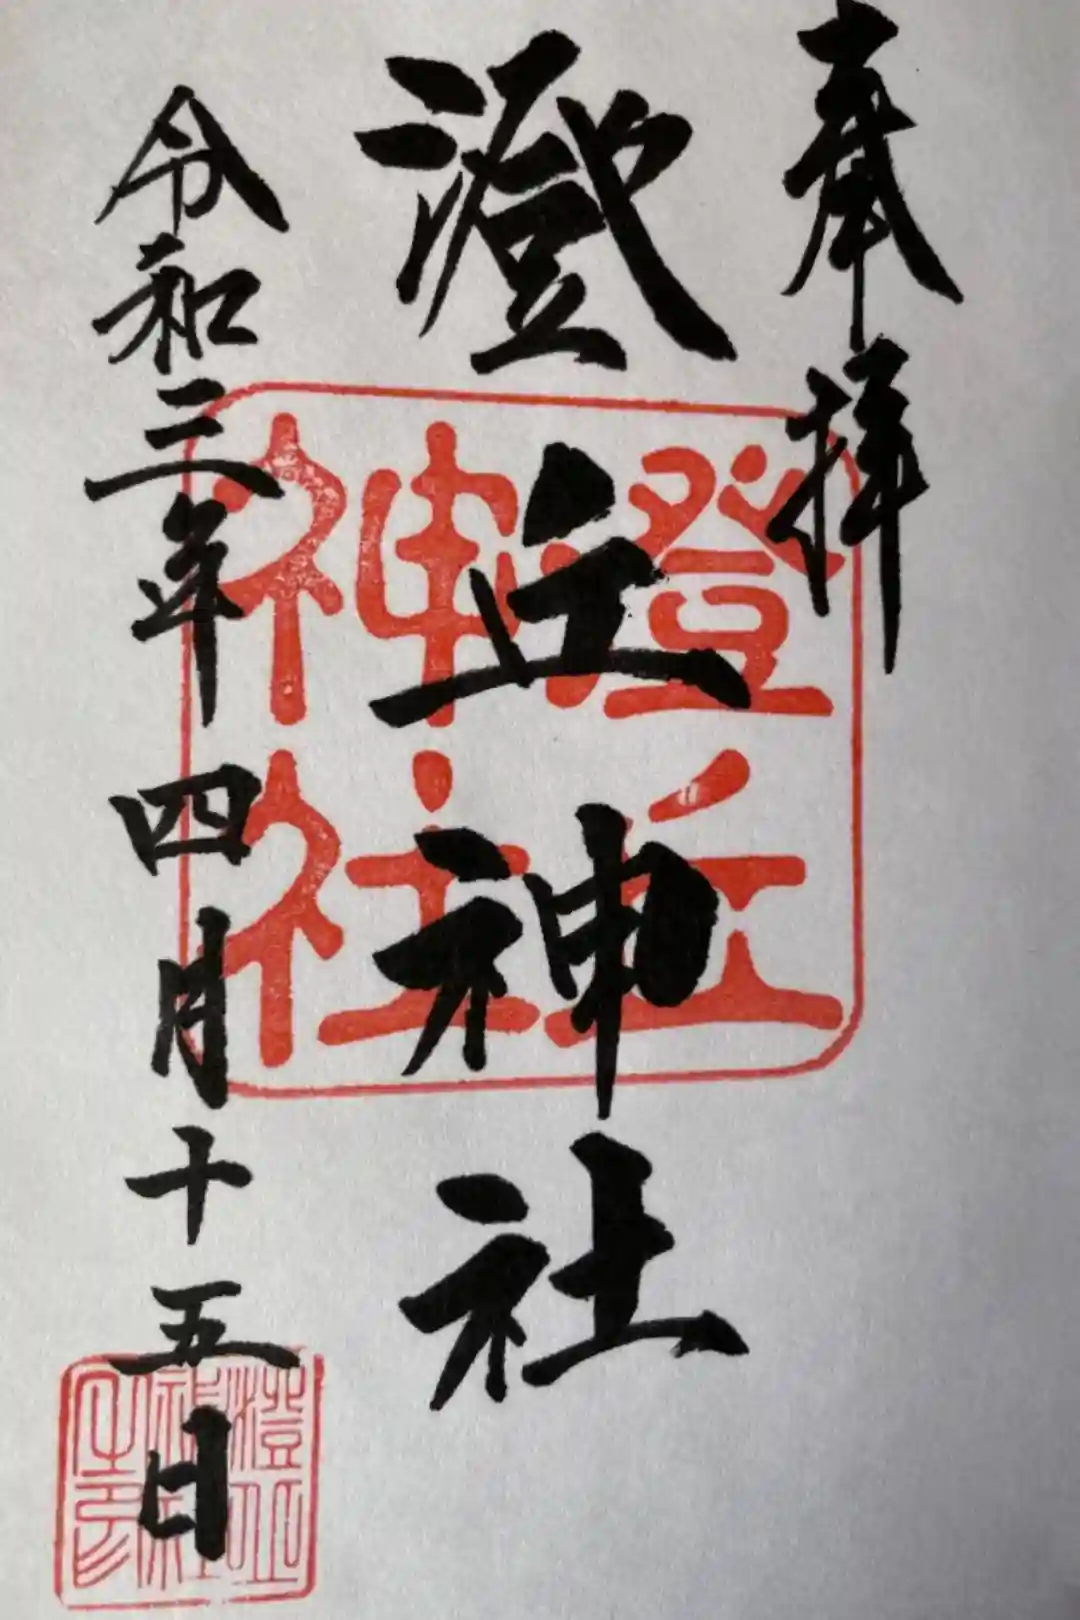 奉拝
澄丘神社
令和三年四月十五日
澄丘
神社